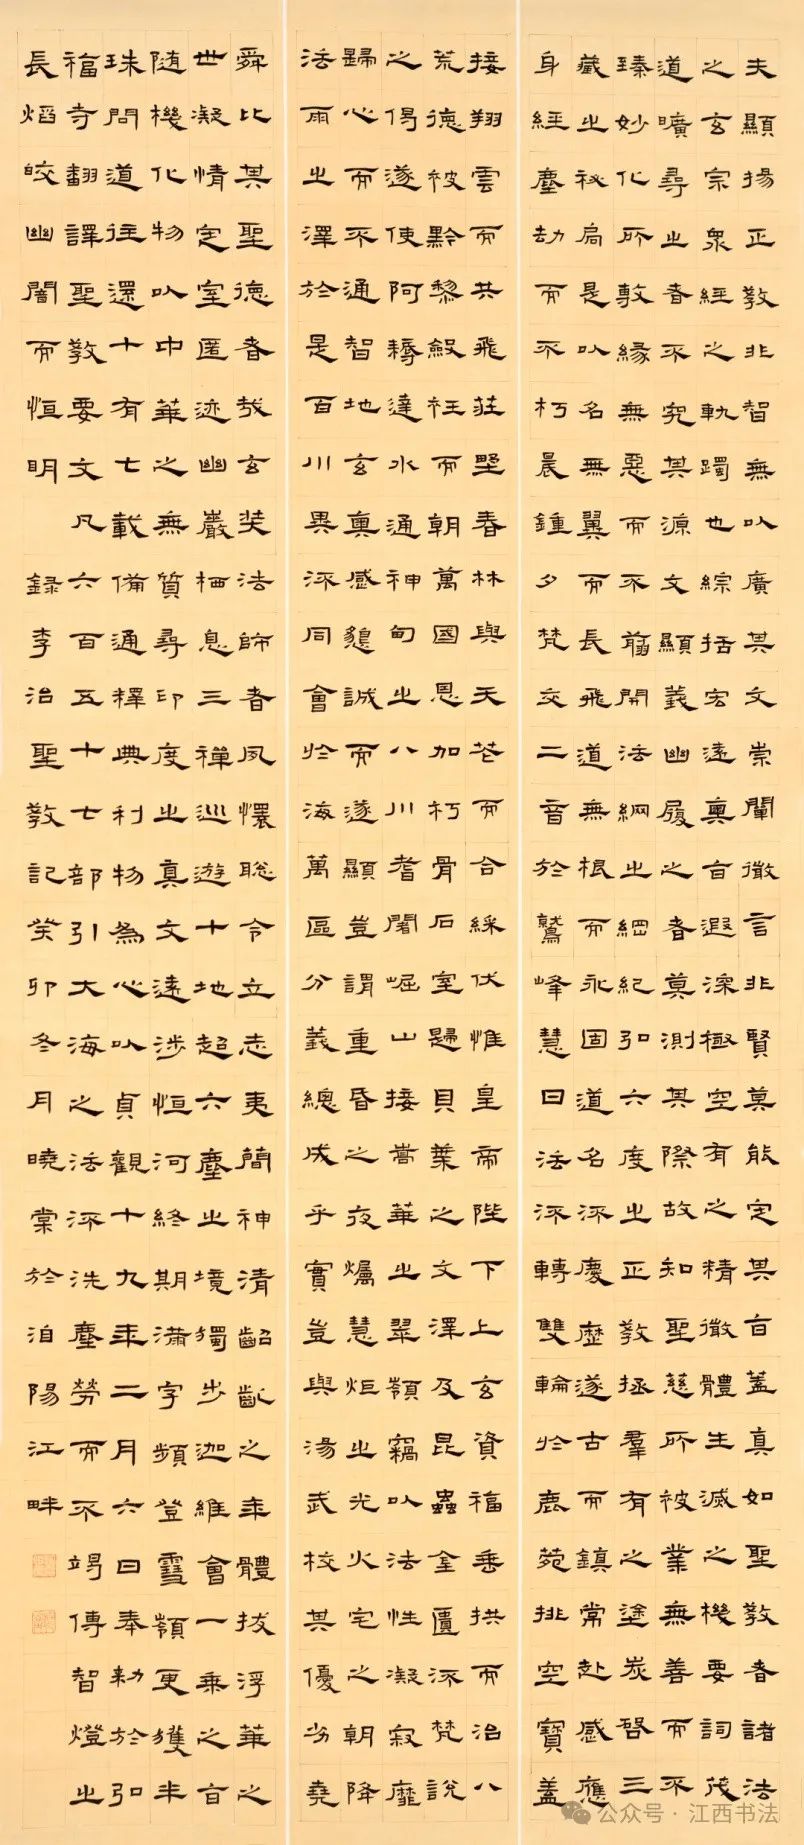 夫顯揚正教非智無以廣其文崇闡微言非賢莫能定其旨蓋真如聖教者諸法
之玄宗衆經之軌躅也綜括宏遠奧旨遐深極空有之精微體生滅之機要詞茂
道曠尋之者不究其源文顯義幽履之者莫測其際故知聖慈所被業無善而不
臻妙化所敷緣無惡而不翦開法網之綱紀弘六度之正教拯羣有之塗炭啓三
藏之祕扃是以名無翼而長飛道無根而永固道名流慶歷遂古而鎮常赴感應
身經塵劫而不朽晨鍾夕梵交二音於鷲峰慧日法流轉雙輪於鹿苑排空寶蓋
接翔雲而共飛莊野春林與天花而合綵伏惟皇帝陛下上玄資福垂拱而治八
荒德被黔黎斂衽而朝萬國恩加朽骨石室歸貝葉之文澤及昆蟲金匱流梵說
之偈遂使阿耨達水通神甸之八川耆闍崛山接嵩華之翠嶺竊以法性凝寂靡
歸心而不通智地玄奧感懇誠而遂顯豈謂重昏之夜燭慧炬之光火宅之朝降
法雨之澤於是百川異流同會於海萬區分義總成乎實豈與湯武校其優劣堯
舜比其聖德者哉玄奘法師者夙懷聰令立志夷簡神清齠齔之年體拔浮華之
世凝情定室匿迹幽巖栖息三禪巡遊十地超六塵之境獨步迦維會一乘之旨
隨機化物以中華之無質尋印度之真文遠涉恒河終期滿字頻登雪嶺更獲半
珠問道往還十有七載備通釋典利物為心以貞觀十九年二月六日奉勅於弘
福寺翻譯聖教要文凡六百五十七部引大海之法流洗塵勞而不竭傳智燈之
長焰皎幽闇而恒明
錄李治聖教記癸卯冬月曉棠於泊陽江畔
公众号·江西书法